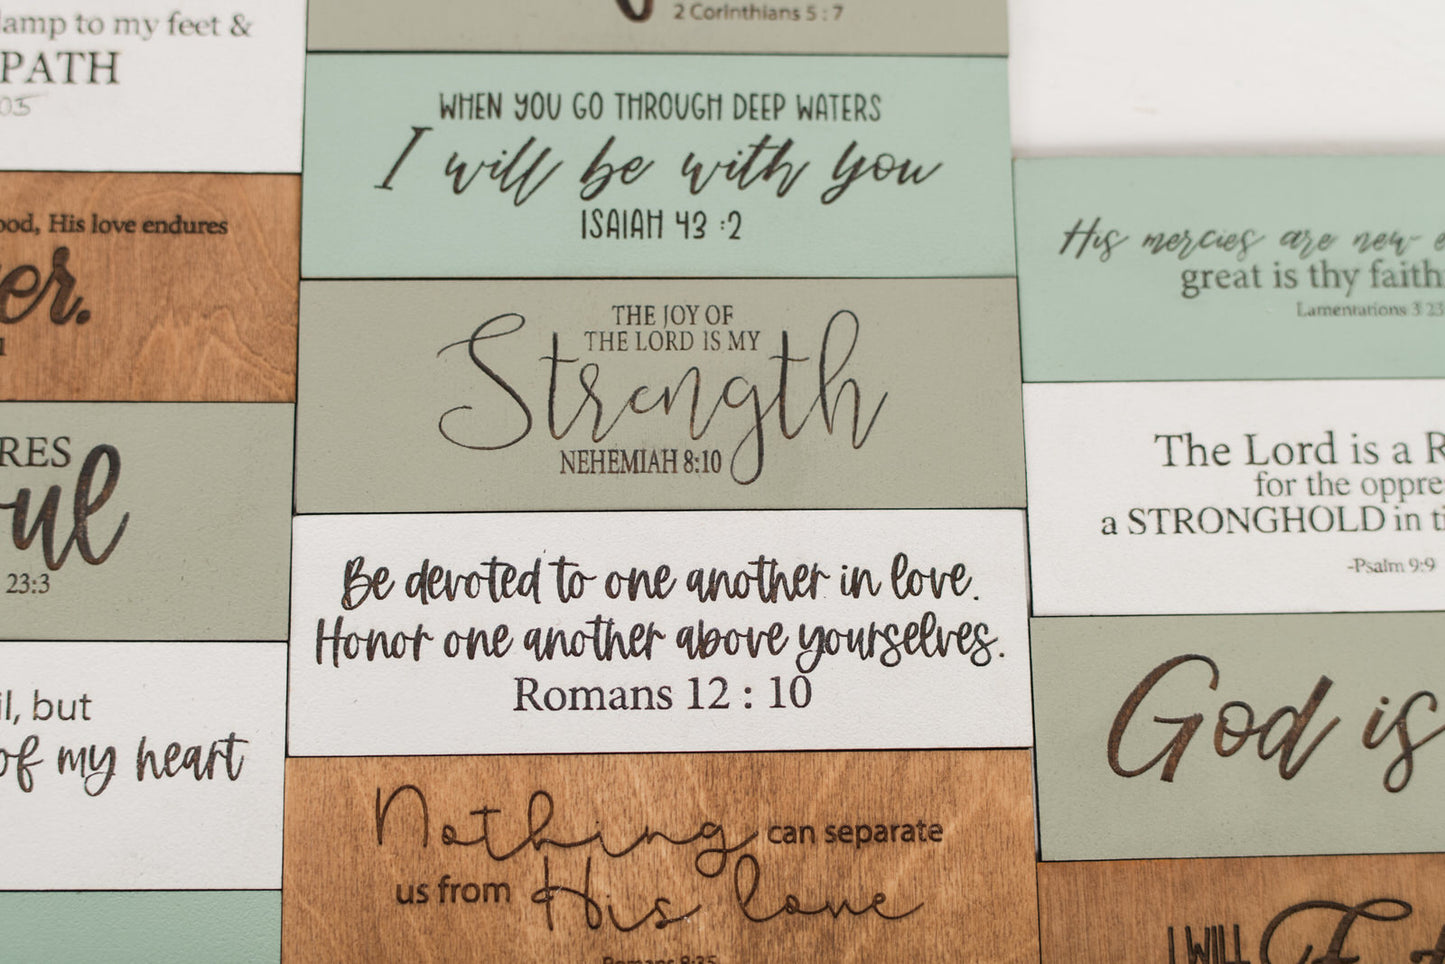 lamp to my feet &
PATH
ood, His love endures
er.
RES
oul
23:3
il, but
of my heart
2 Corinthians 5 : 7
WHEN YOU GO THROUGH DEEP WATERS
I will be with you
ISAIAH 43 :2
THE JOY OF
THE LORD IS MY
Strength
NEHEMIAH 8:10
Be devoted to one another in love.
Honor one another above yourselves.
Romans 12 : 10
Nothing can separate
us from His love
Romans 8:35
His mercies are new e
great is thy faith
Lamentations 3 23
The Lord is a R
for the oppre
a STRONGHOLD in ti
-Psalm 9:9
God is
I WILL